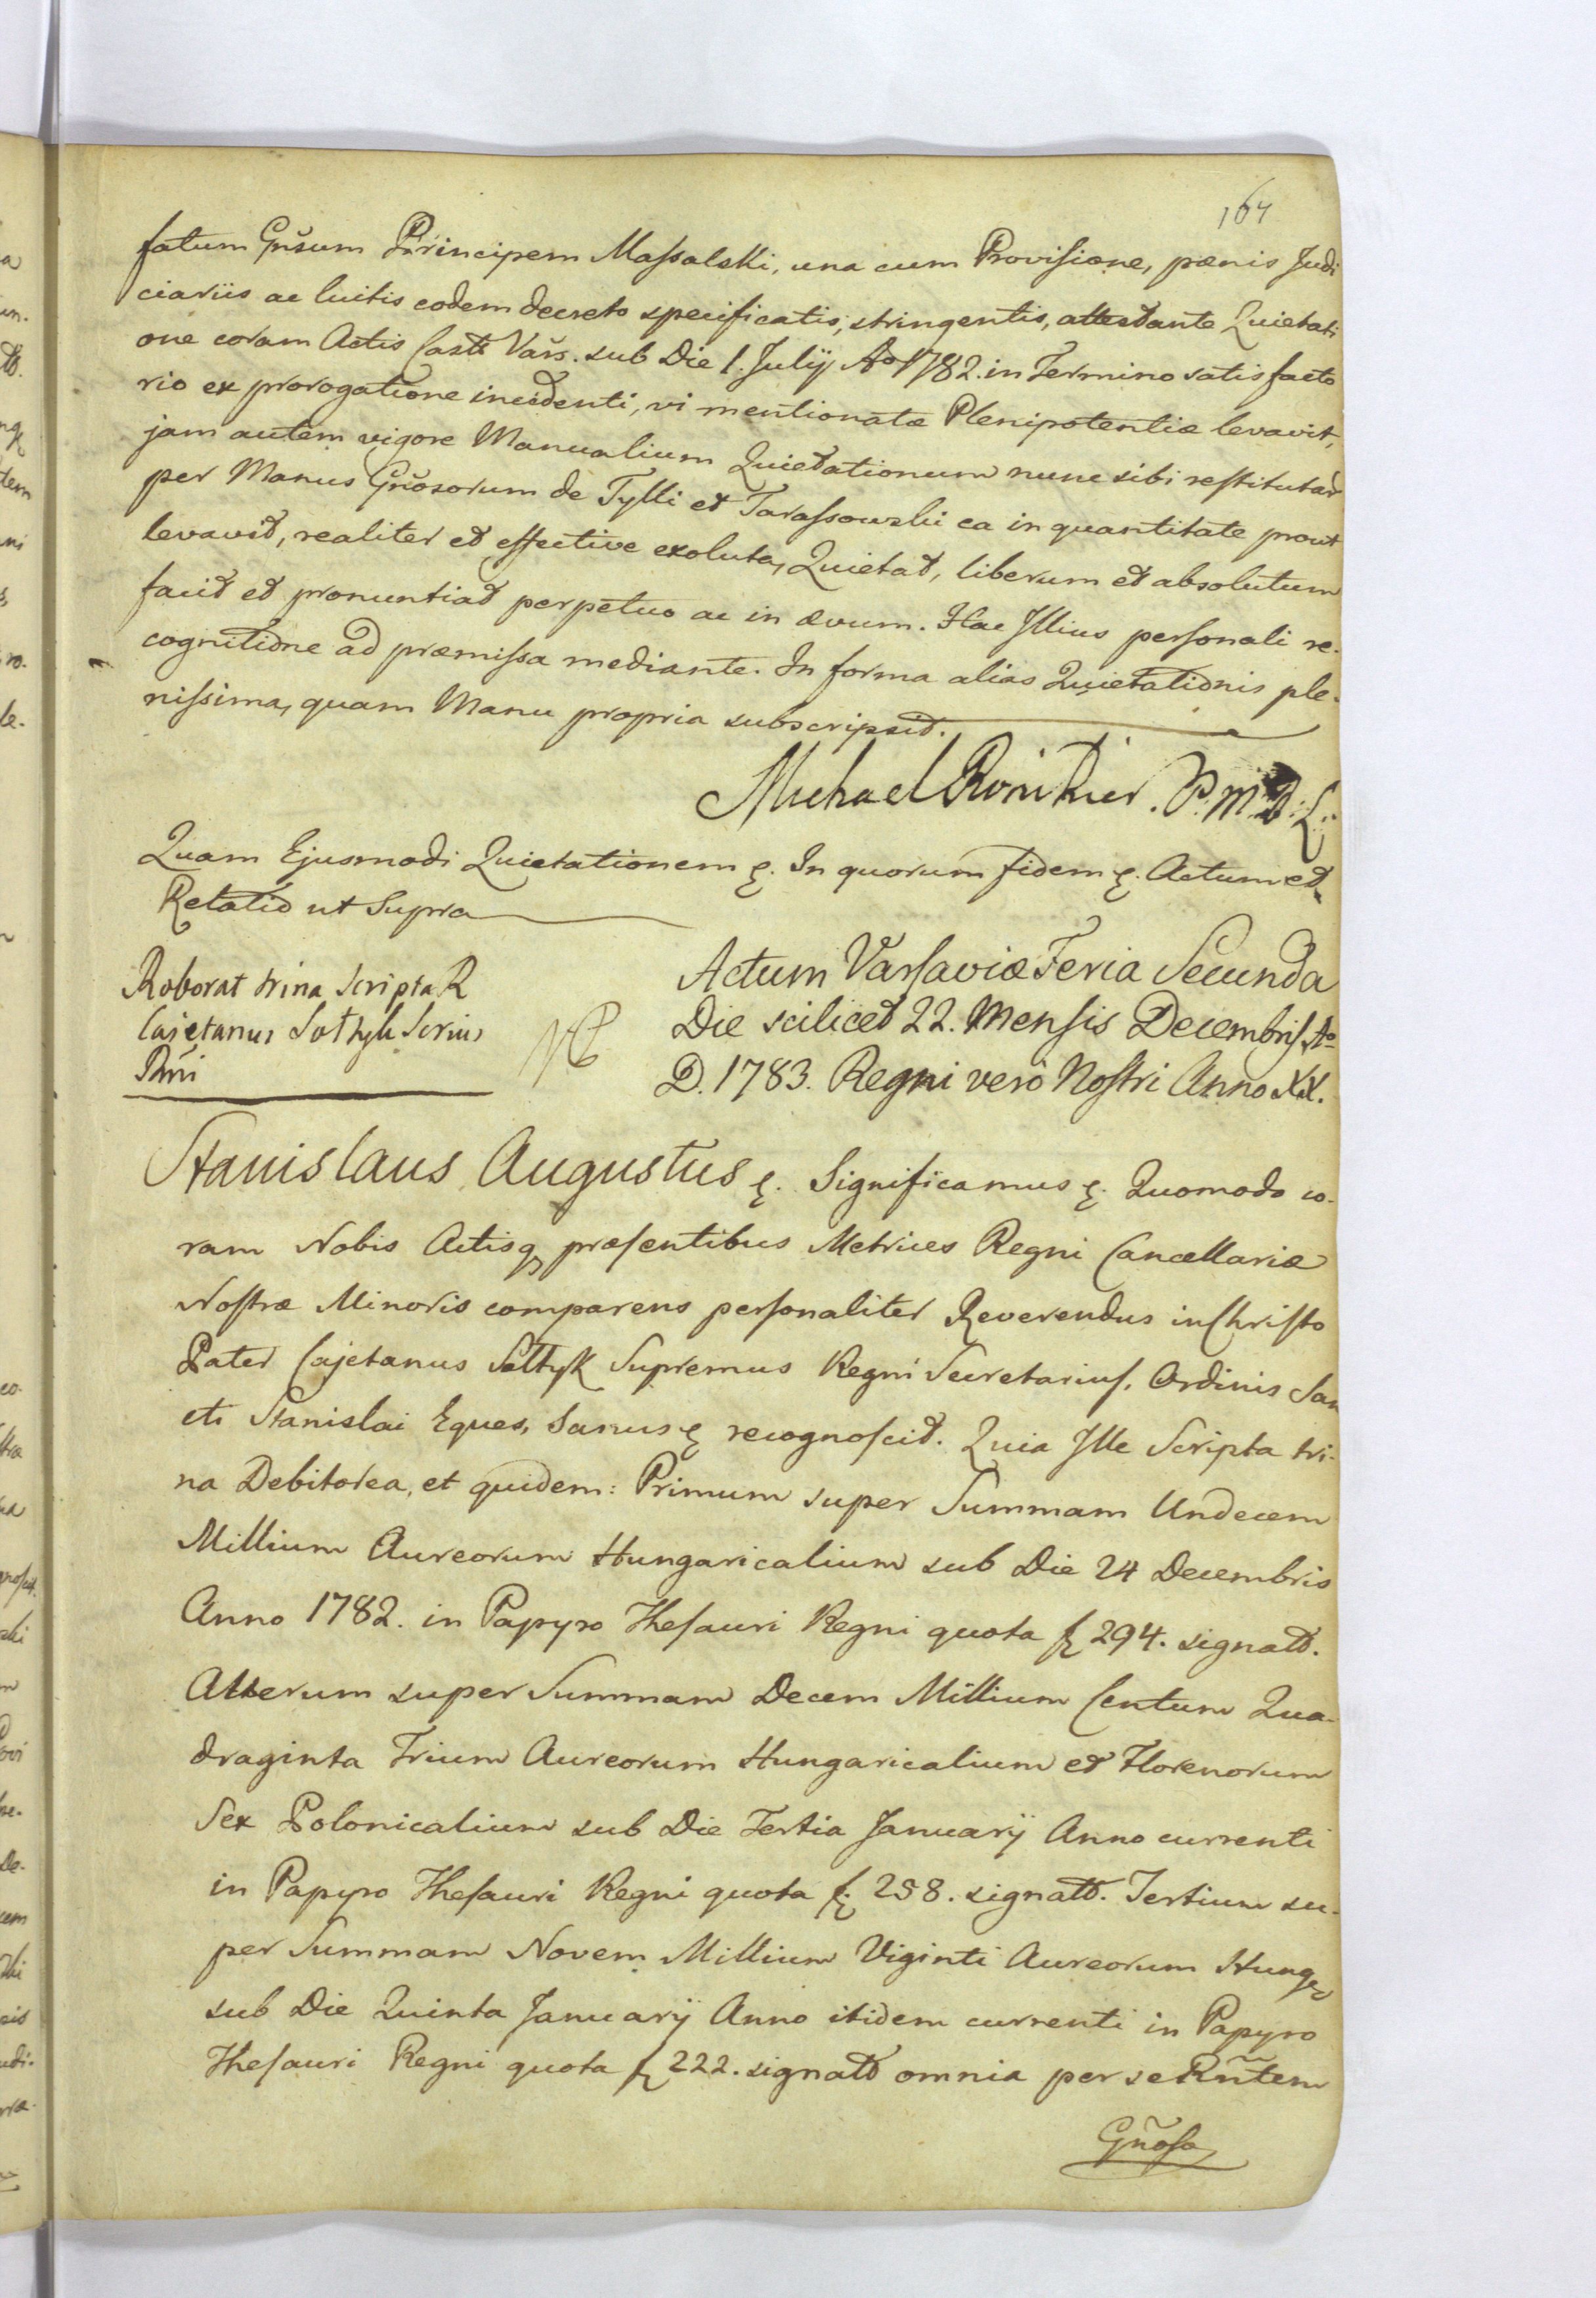 164
fatum Gnsum Principem Massalski, una cum Provisione, pœnis Judi
ciariis ac luitis eodem decreto specificatis, stringentis, attestante Quietati
one coram Actis Castr Vars. sub Die 1. Julij Ao 1782. in Termino satisfacto
rio ex prorogatione incidenti, vi mentionatæ Plenipotentiæ levavit,
jam autem vigore Manualium Quietationum nunc sibi restitutar
per Manus Gnosorum de Tylli et Tarassowski ea in quantitate prout
levavit, realiter et effective exoluta, Quietat, liberum et absolutum
facit et pronuntiat perpetuo ac in ævum. Hac Illius personali re-
cognitione ad præmissa mediante. In forma alias Quietationis ple-
nissima, quam Manu propria subscripsit.
Michael Ronikier. P. M. D. L.
Quam Ejusmodi Quietationem &. In quorum fidem &. Actum et
Relatio ut Supra
Roborat trina Scripta R
Cajetanus Sołtyk Scrius
Rni
Actum Varsaviæ Feria Secunda
Die scilicet 22. Mensis Decembris Ao
D. 1783. Regni verò Nostri Anno XX.
Stanislaus Augustus &. Significamus &. Quomodo co-
ram Nobis Actisq præsentibus Metrices Regni Cancellariæ
Nostræ Minoris comparens personaliter Reverendus in Christo
Pater Cajetanus Sołtyk Supremus Regni Secretarius, Ordinis San
cti Stanislai Eques, Sanus & recognoscit. Quia Ille Scripta tri-
na Debitorea, et quidem: Primum super Summam Undecem
Millium Aureorum Hungaricalium sub Die 24 Decembris
Anno 1782. in Papyro Thesauri Regni quota f 294. signatt.
Alterum super Summam Decem Millium Centum Qua-
draginta Trium Aureorum Hungaricalium et Florenorum
Sex Polonicalium sub Die Tertia Januarij Anno currenti
in Papyro Thesauri Regni quota f. 258. signatt. Tertium su-
per Summam Novem Millium Viginti Aureorum Hung
sub Die Quinta Januarij Anno itidem currenti in Papyro
Thesauri Regni quota f 222. signatt omnia per se Rñtem
Gñosa